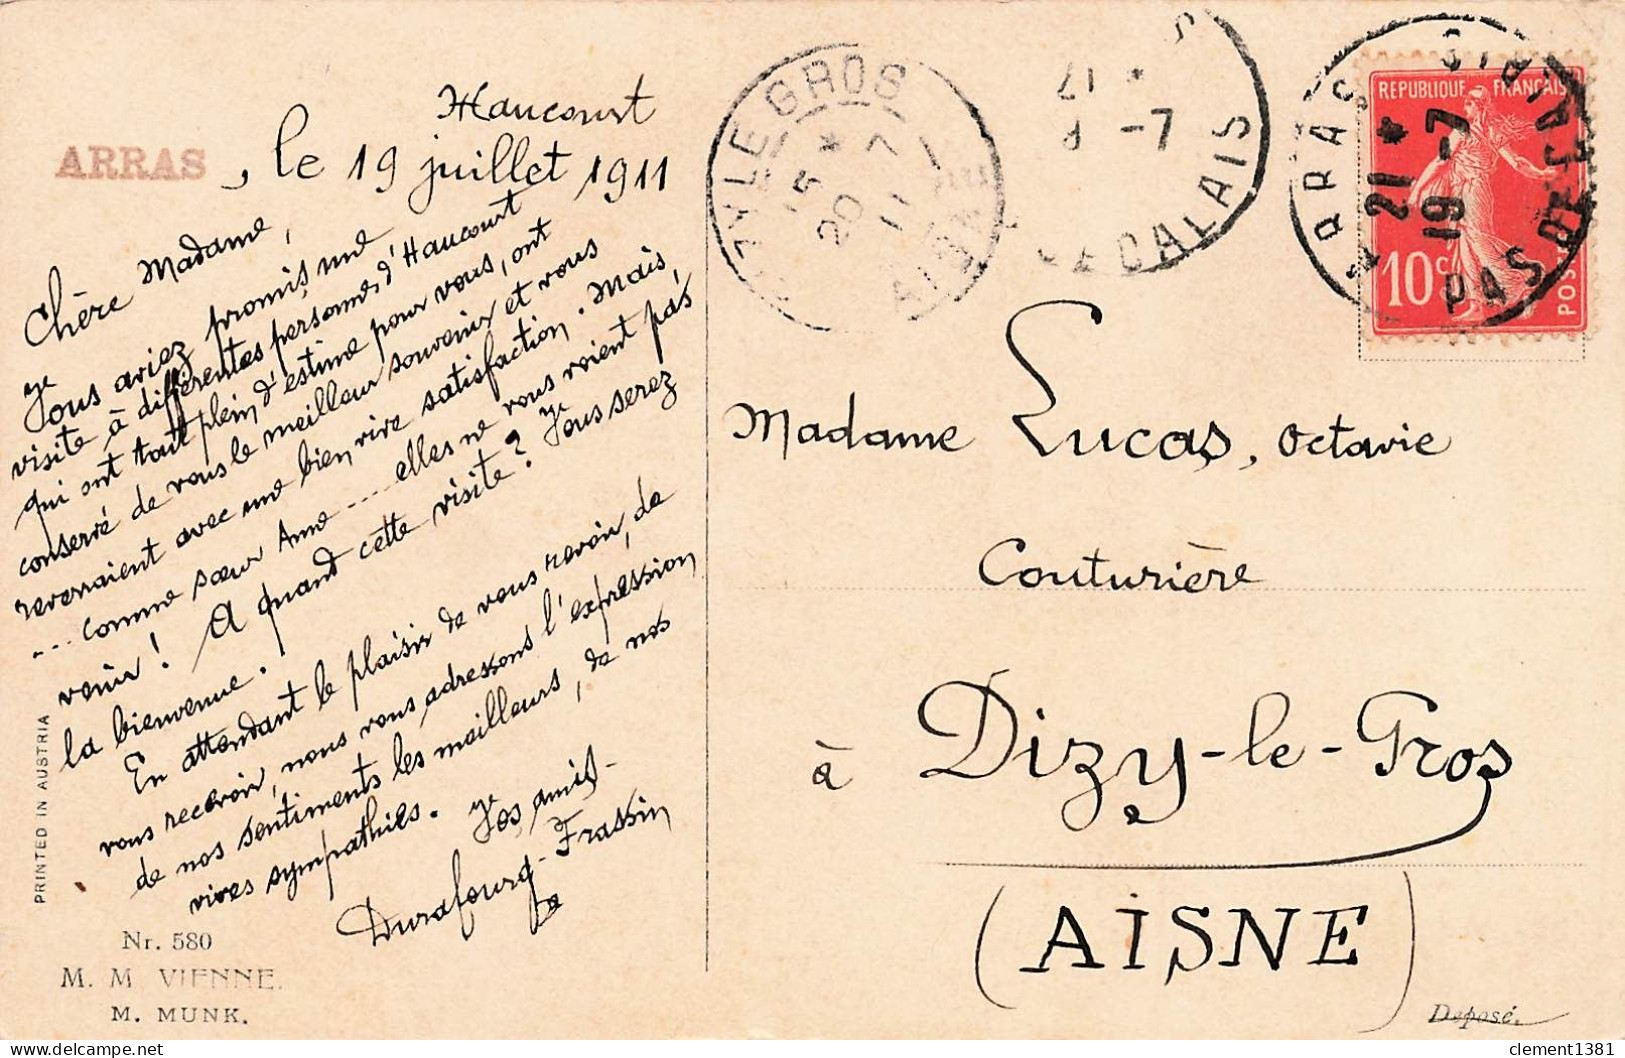 Haucourt
ARRAS, le 19 juillet 1911
Chère Madame,
Vous aviez promis une
visite à différentes personnes d'Haucourt
qui ont tout plein d'estime pour vous, ont
conservé de vous le meilleur souvenir et vous
reverraient avec une bien vive satisfaction. Mais,
... comme sœur Anne .... elles ne vous voient pas
venir! A quand cette visite? Vous serez
la bienvenue.
En attendant le plaisir de vous revoir, de
vous recevoir, nous vous adressons l'expression
de nos sentiments les meilleurs, de nos
vives sympathies. Vos amis
Durafourg-Frassin
PRINTED IN AUSTRIA
Nr. 580
M. M. VIENNE.
M. MUNK.
DIZY LE GROS
15 * 7
20
11
AISNE
* 17
8 -7
DE CALAIS
ARRAS GARE
21 *
19 -7
PAS DE CALAIS
REPUBLIQUE FRANÇAISE
10 c
POSTES
Madame Lucas, Octavie
Couturière
à Dizy-le-Gros
(AISNE)
Deposé.
clement1381